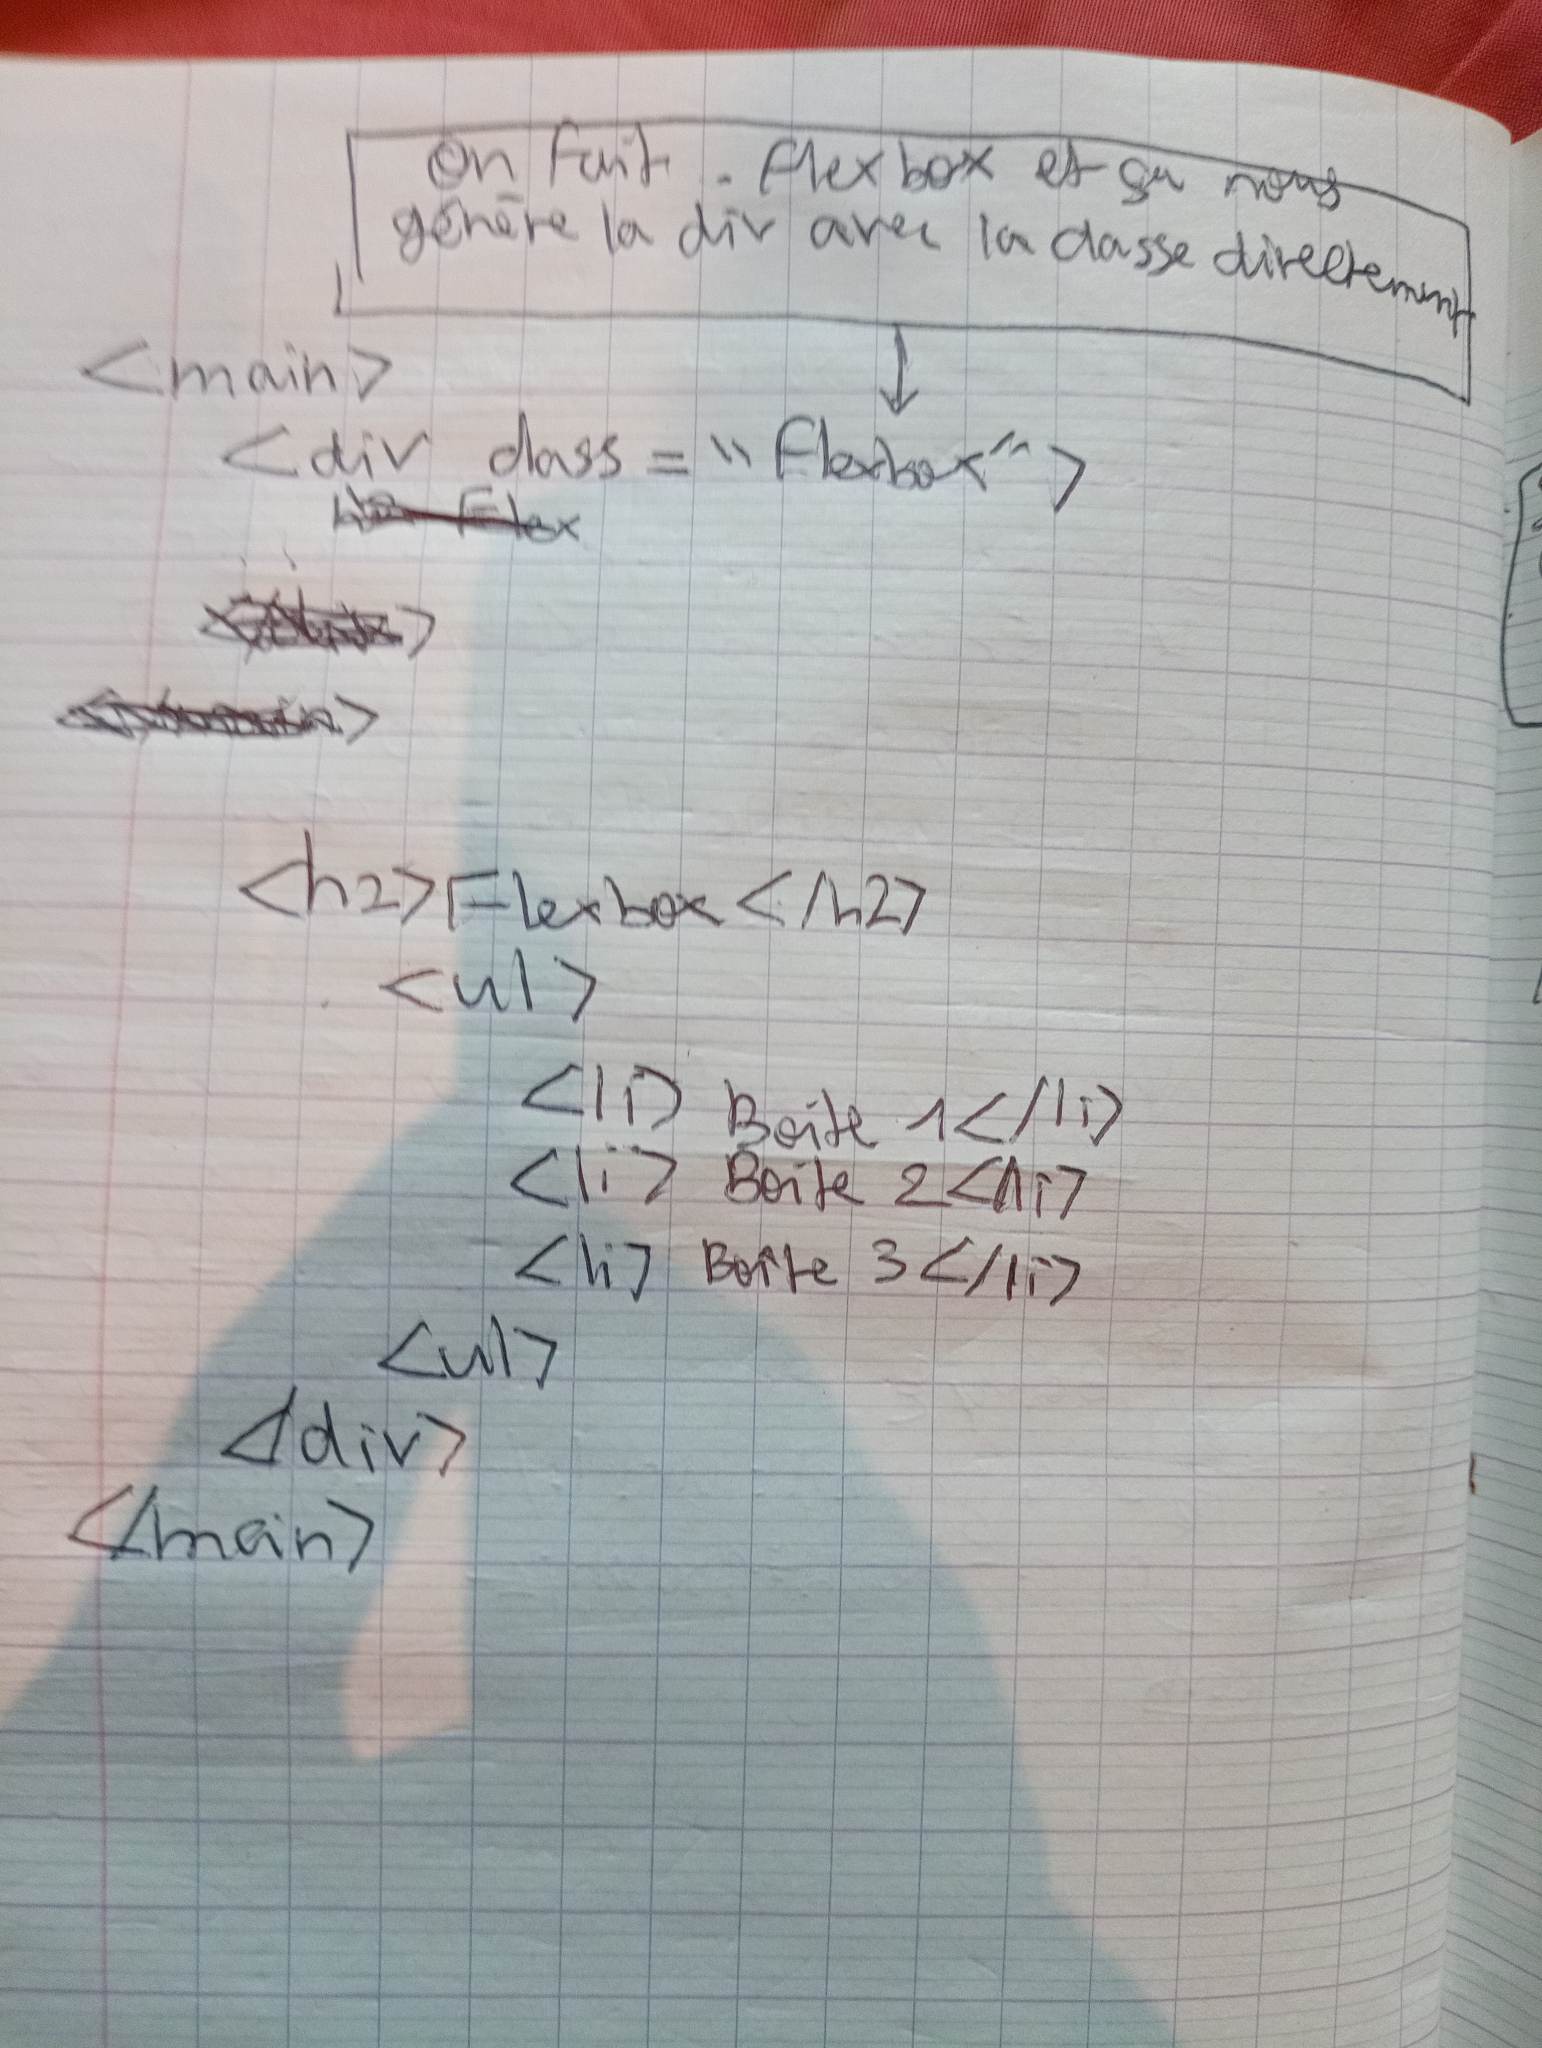 On fait .flexbox et ça nous
génère la div avec la classe directement
<main>
<div class = "flexbox">
h2 Flex
<h2>Flexbox</h2>
<ul>
<li> Boite 1</li>
<li> Boite 2</li>
<li> Boite 3</li>
<ul>
</div>
</main>